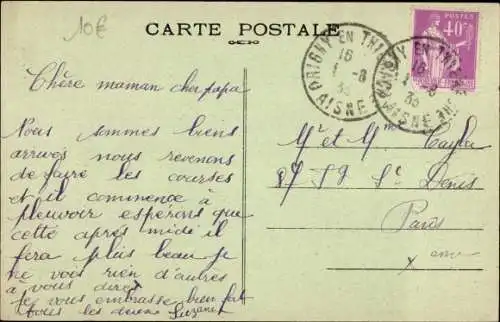 10€
CARTE POSTALE
POSTES
40c
ORIGNY EN THIERACHE
16
1 -8
35
AISNE
ORIGNY EN THIERACHE
16
1 -8
35
AISNE
Chère maman cher papa
Nous sommes biens
arrivés nous revenons
de faire les courses
et il commence à
pleuvoir espérons que
cette après midi il
fera plus beau je
ne vous rien d'autres
à vous dire
Je vous embrasse bien fort
tous les deux Suzanne
Mr et Mme
87 Fg St Denis
Paris
xeme